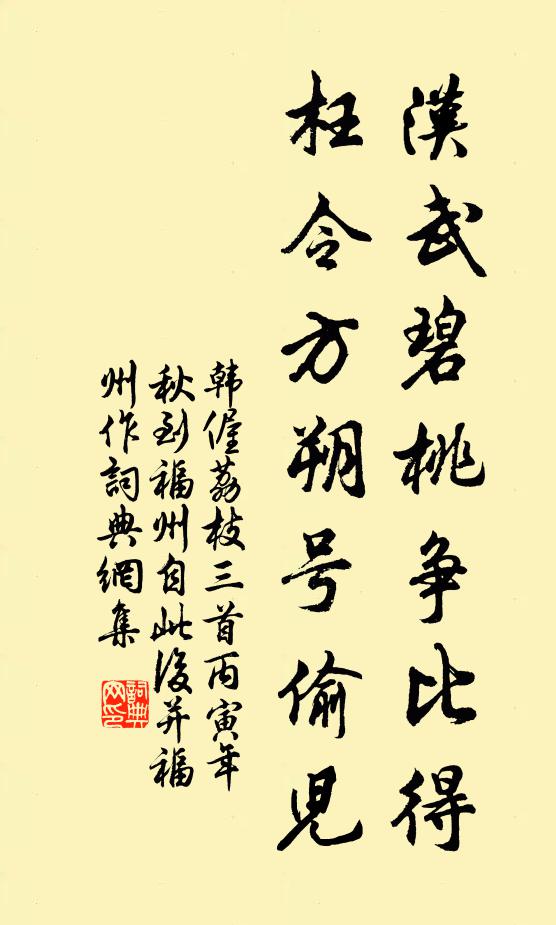 漢武碧桃争比得
枉令方朔号偷児
韩偓荔枝三首丙寅年
秋到福州自此後并福
州作詞典網集
詞典
网印